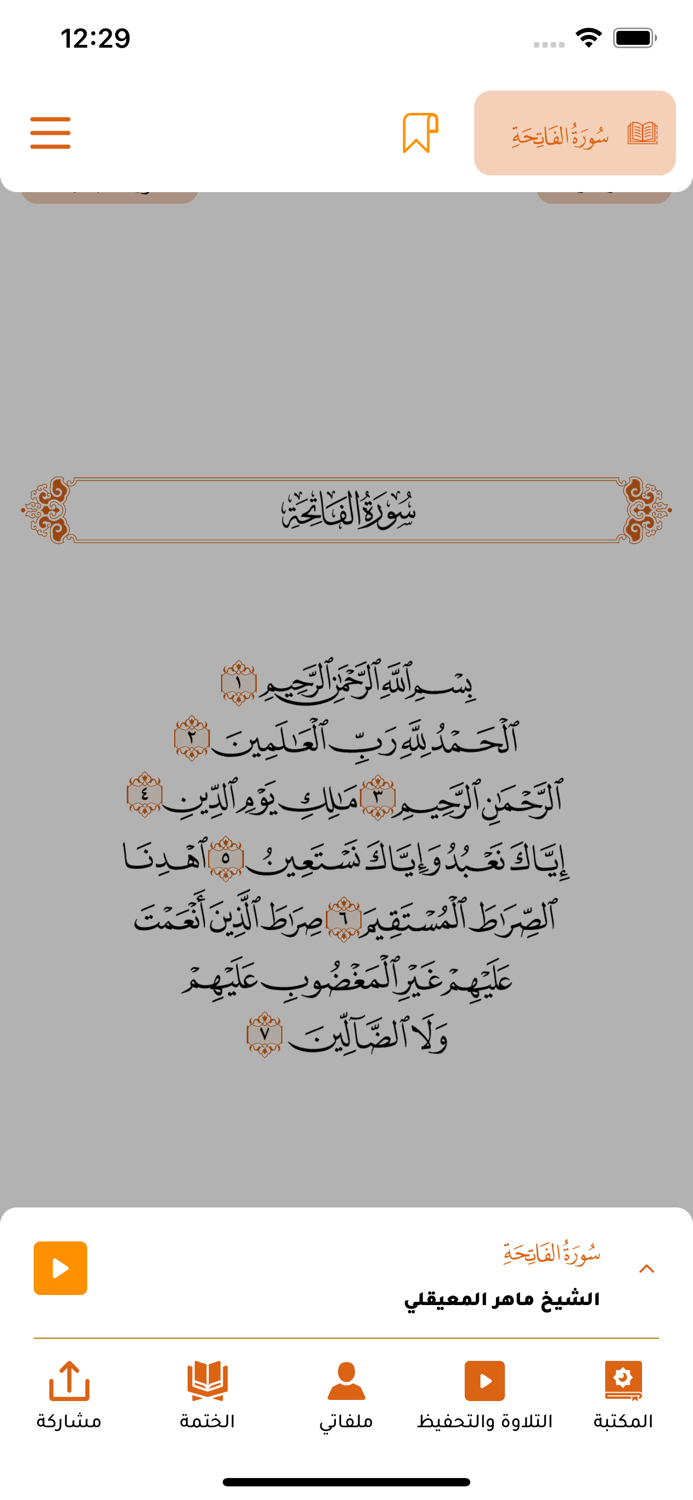 12:29
سُورَةُ الفَاتِحَةِ
سُورَةُ الفَاتِحَةِ
بِسْمِ ٱللَّهِ ٱلرَّحْمَٰنِ ٱلرَّحِيمِ ١
ٱلْحَمْدُ لِلَّهِ رَبِّ ٱلْعَٰلَمِينَ ٢
ٱلرَّحْمَٰنِ ٱلرَّحِيمِ ٣ مَٰلِكِ يَوْمِ ٱلدِّينِ ٤
إِيَّاكَ نَعْبُدُ وَإِيَّاكَ نَسْتَعِينُ ٥ ٱهْدِنَا
ٱلصِّرَٰطَ ٱلْمُسْتَقِيمَ ٦ صِرَٰطَ ٱلَّذِينَ أَنْعَمْتَ
عَلَيْهِمْ غَيْرِ ٱلْمَغْضُوبِ عَلَيْهِمْ
وَلَا ٱلضَّآلِّينَ ٧
سُورَةُ الفَاتِحَةِ
الشيخ ماهر المعيقلي
المكتبة
التلاوة والتحفيظ
ملفاتي
الختمة
مشاركة